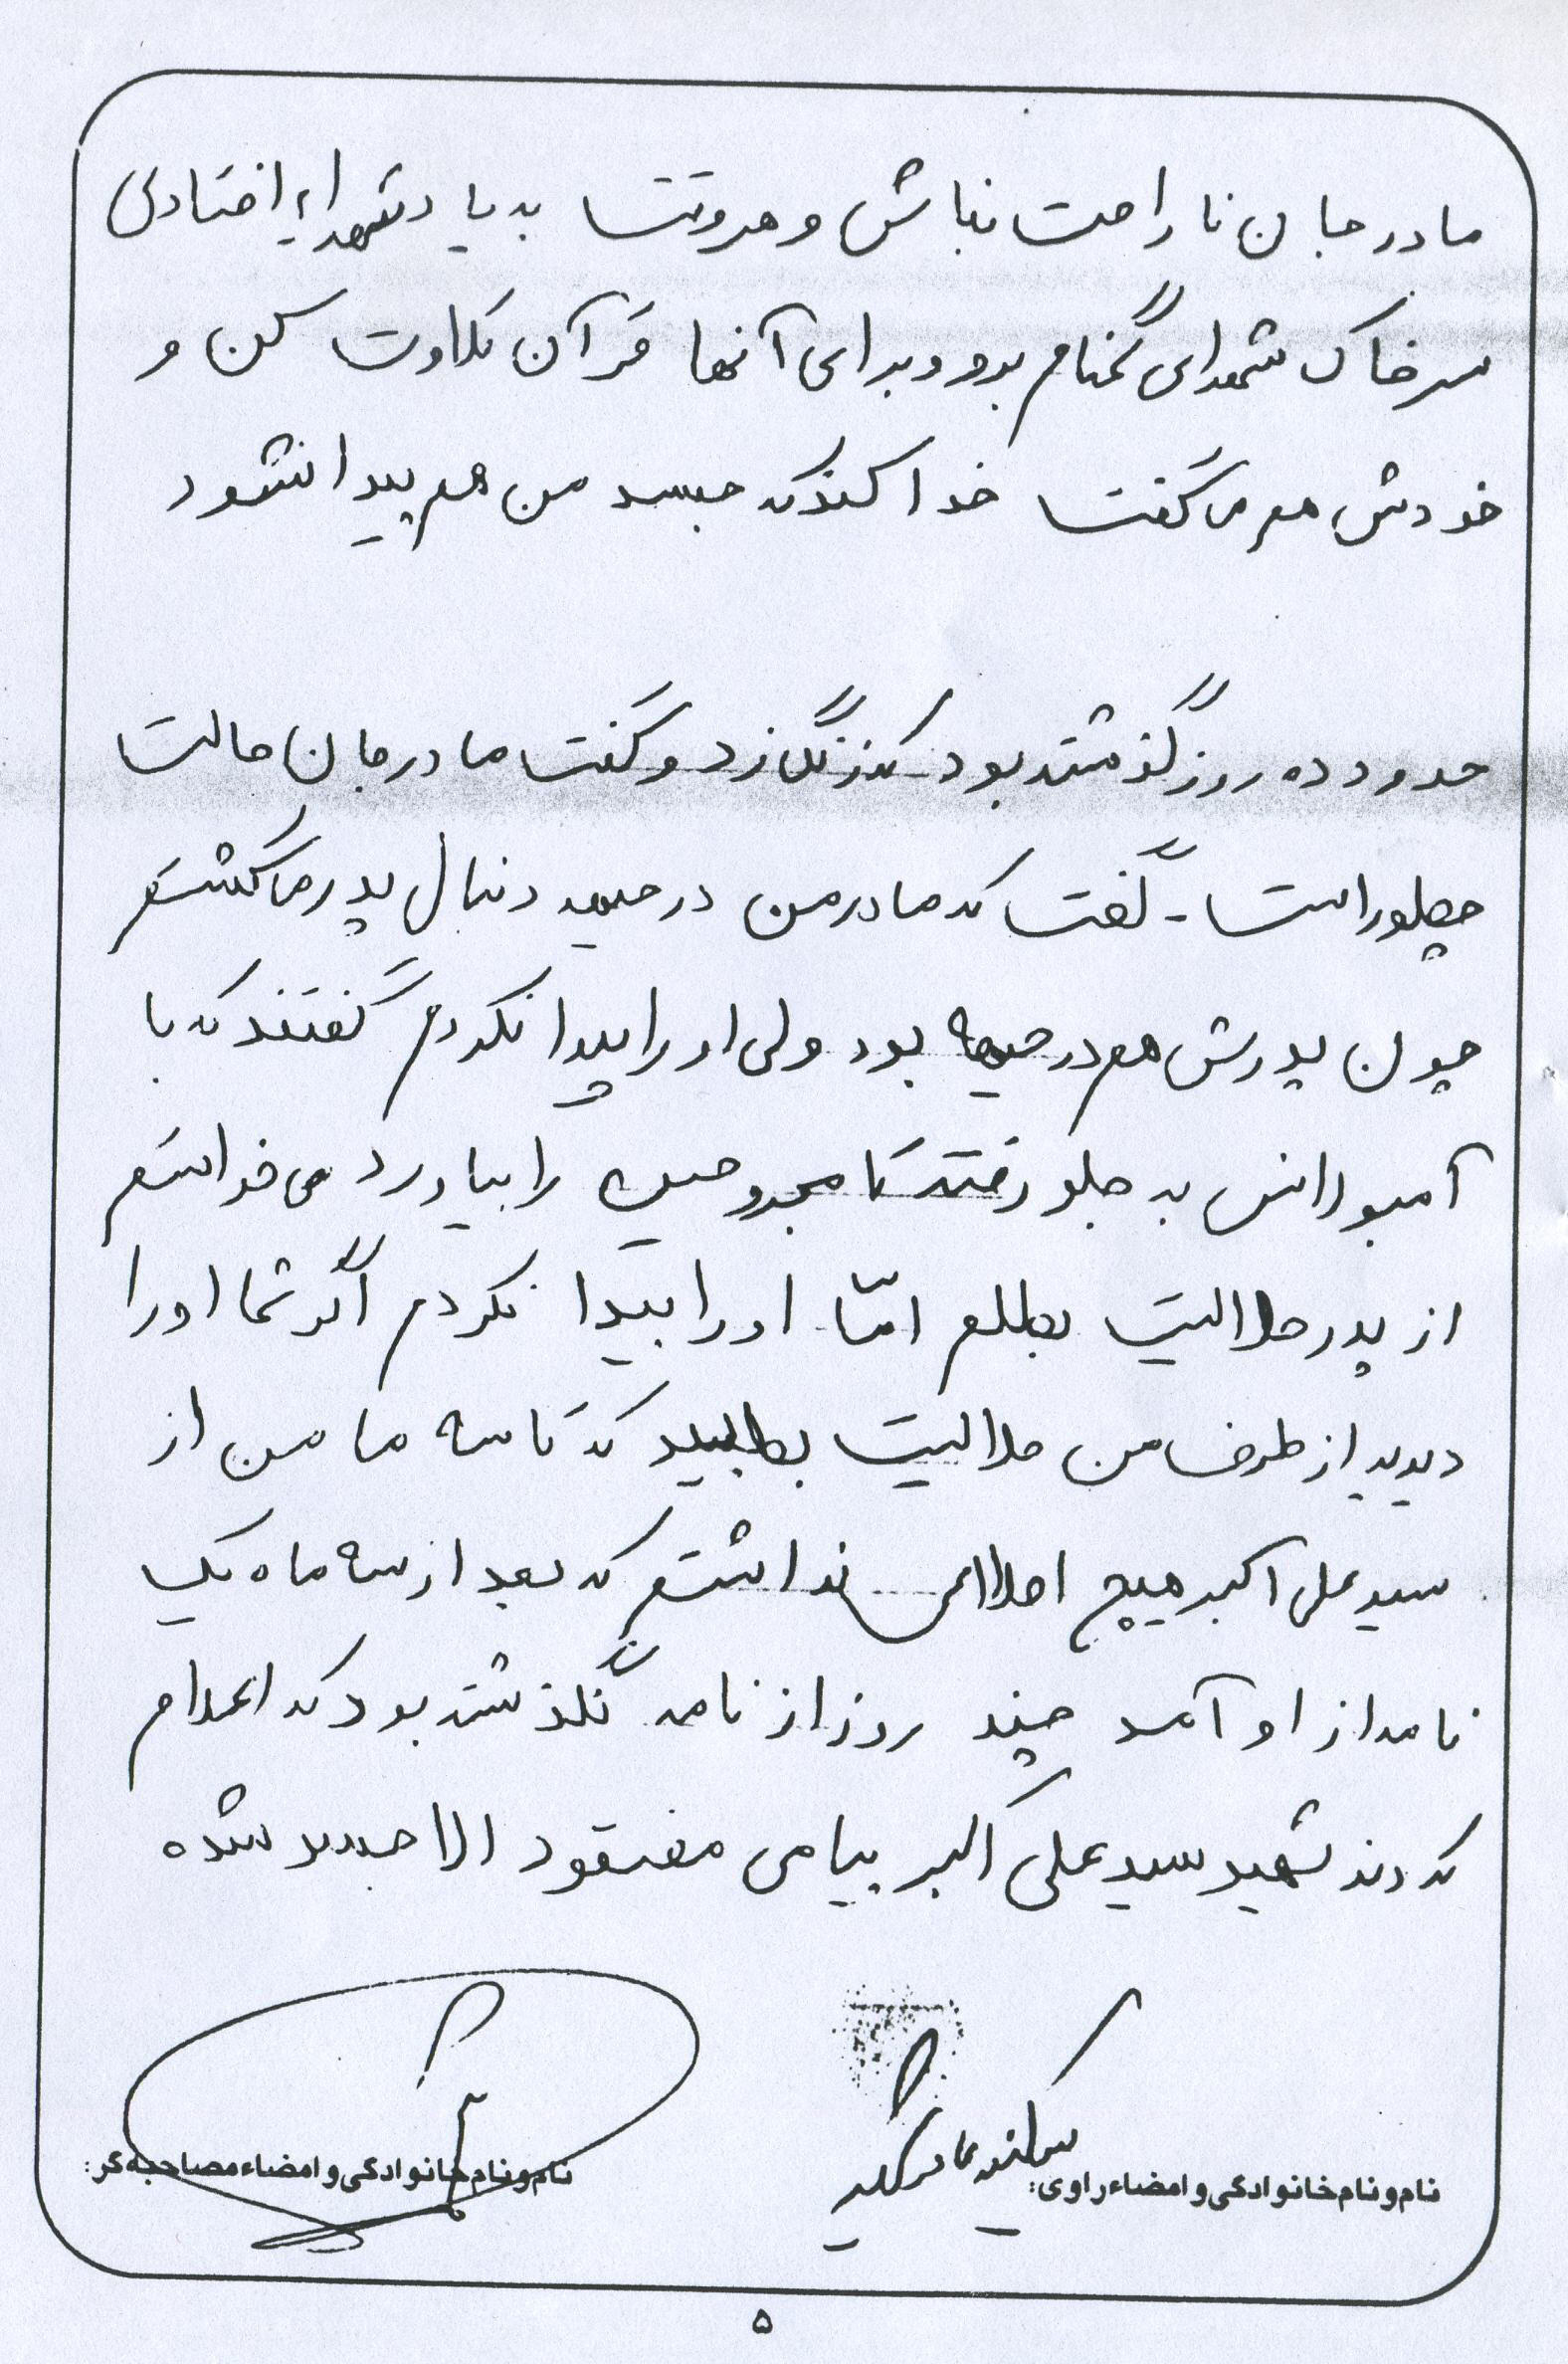 مادر جان ناراحت نباش و هر وقت به یاد شهداء افتادی
سر خاک شهدای گمنام برو و برای آنها قرآن تلاوت کن و
خودش هم می گفت خدا کند که جسد من هم پیدا نشود
حدود ده روز گذشته بود که زنگ زد و گفت مادر جان حالت
چطور است - گفت که مادر من در جبهه دنبال پدر می گشتم
چون پدرش هم در جبهه بود ولی او را پیدا نکردم گفتند که با
آمبولانس به جلو رفته تا مجروحین را بیاورد می خواستم
از پدر حلالیت بطلبم امّا او را پیدا نکردم اگر شما او را
دیدید از طرف من حلالیت بطلبید که تا سه ما من از
سید علی اکبر هیچ اطلاعی نداشتم که بعد از سه ماه یک
نامه از او آمد چند روز از نامه نگذشته بود که اعلام
کردند شهید سید علی اکبر پیامی مفقود الاجسد شده
نام و نام خانوادگی و امضاء راوی: سکینه
نام و نام خانوادگی و امضاء مصاحبه گر:
۵